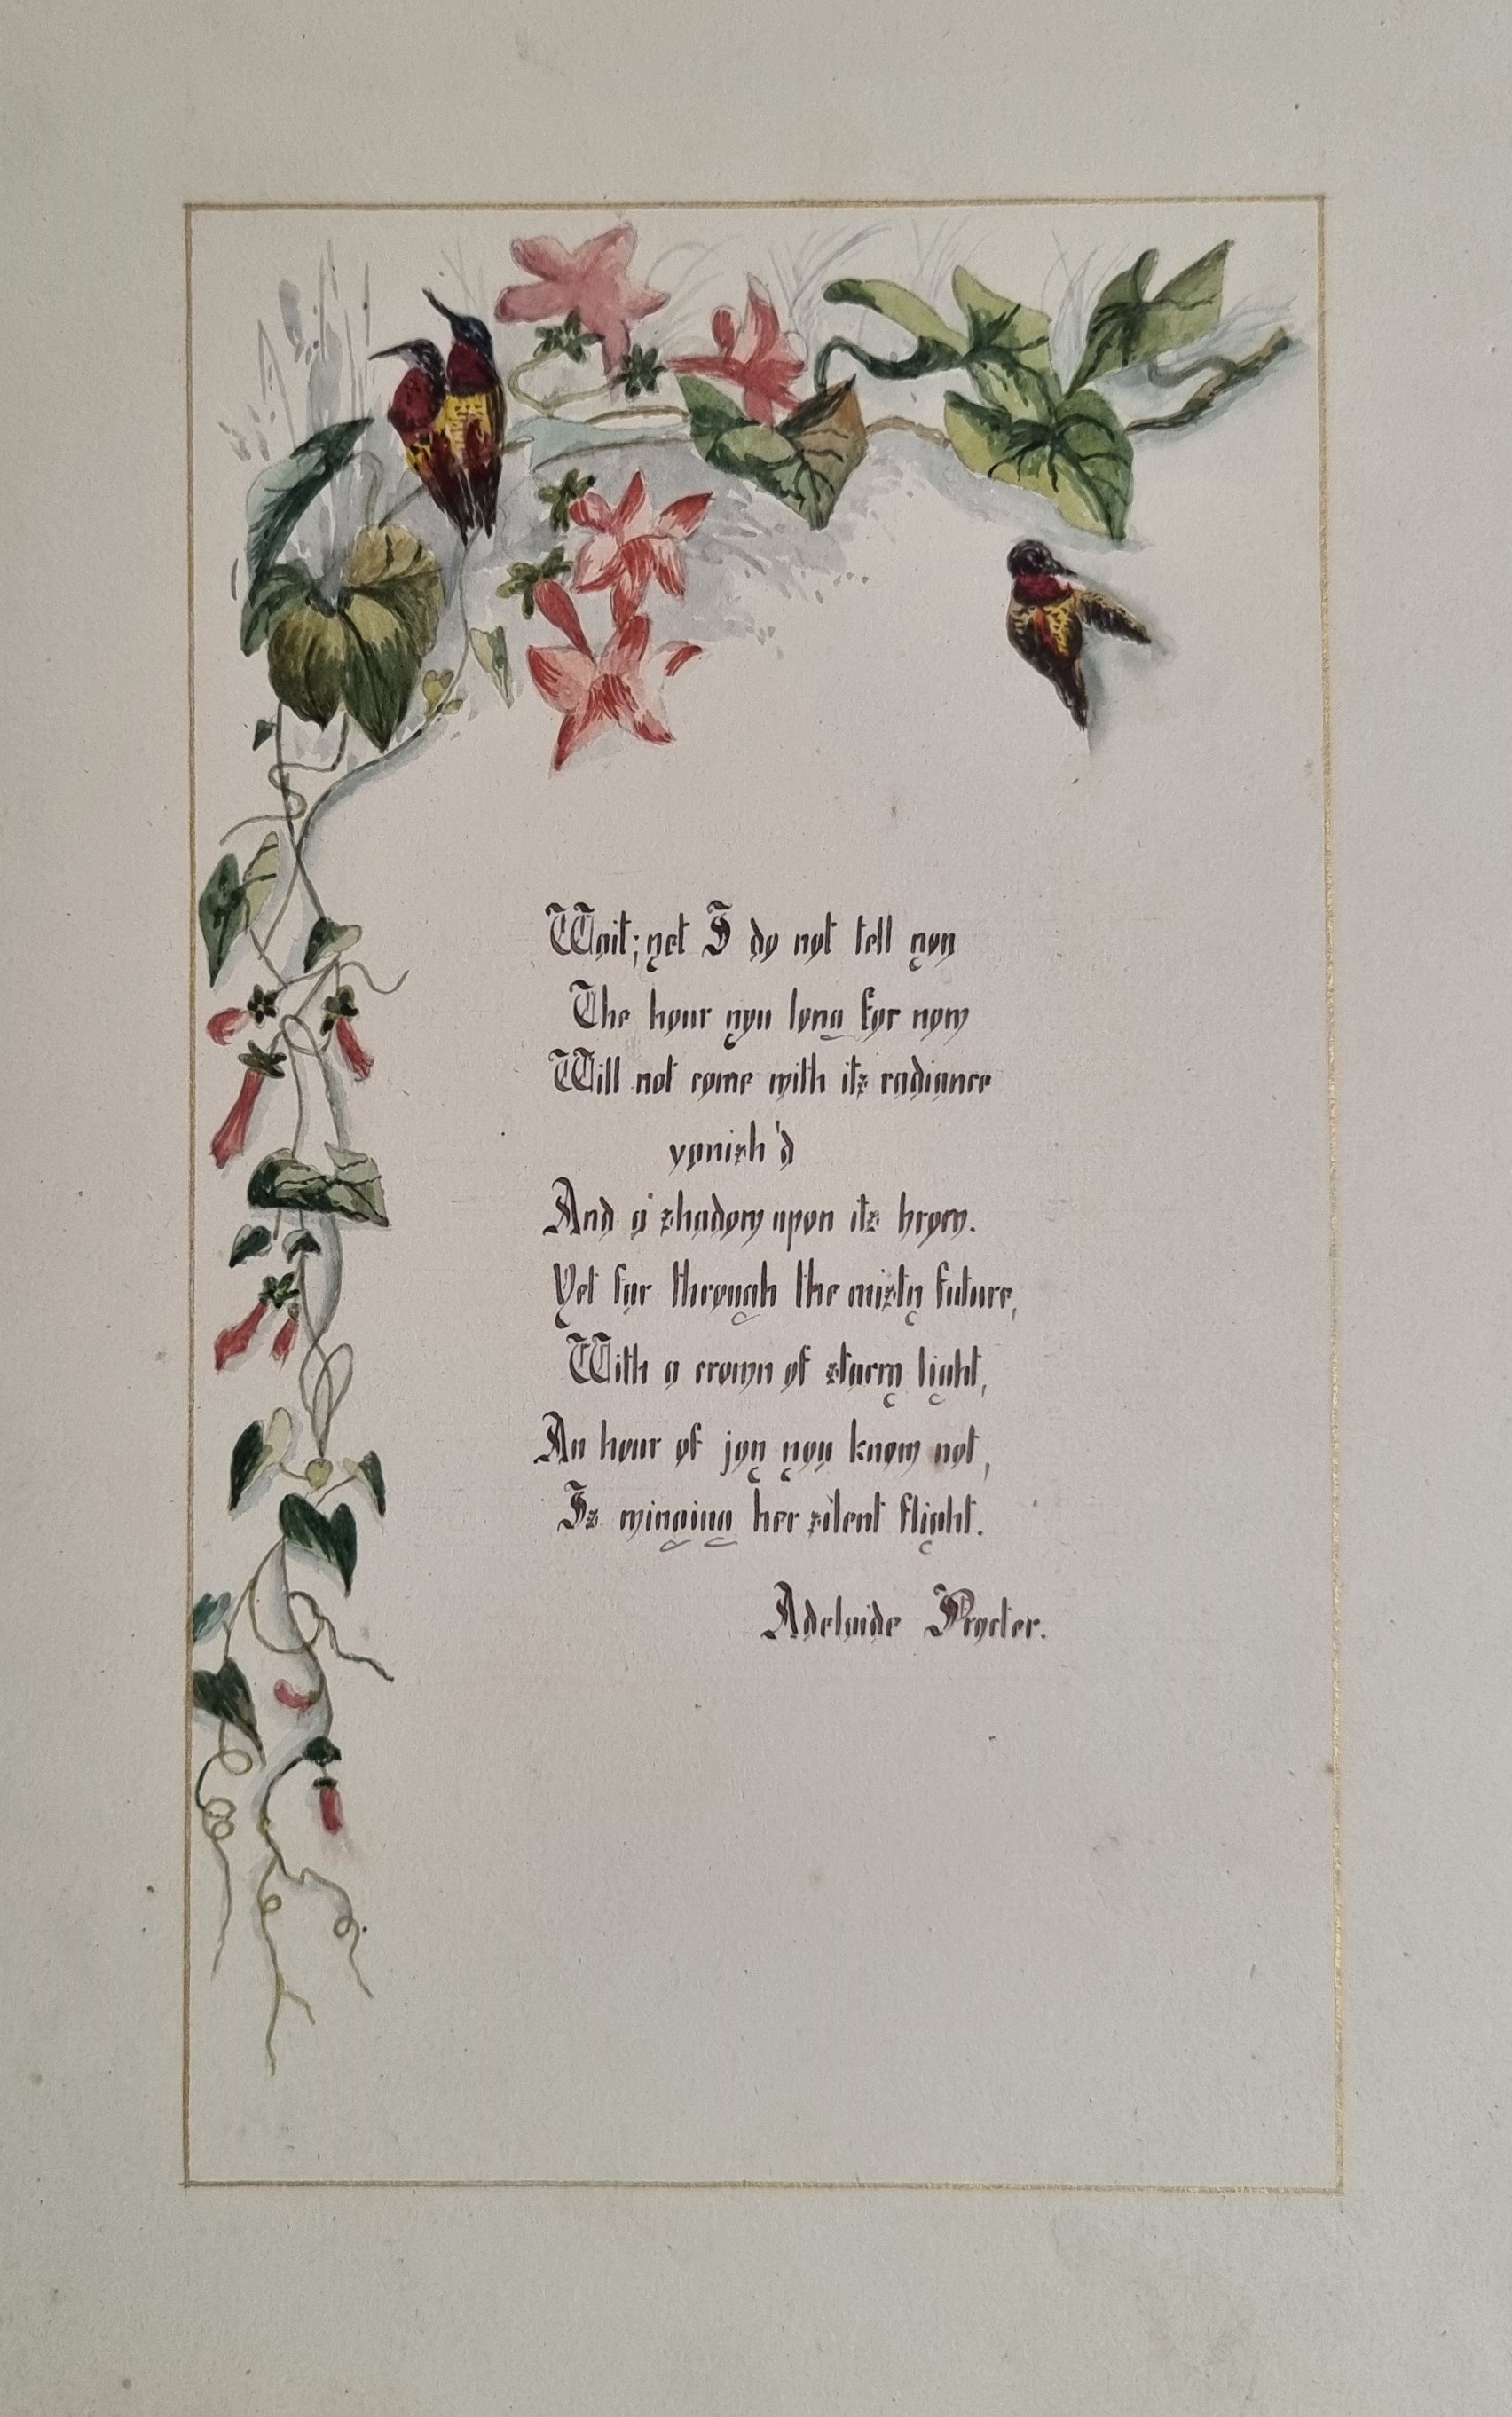 Wait; yet I do not tell you
The hour you long for now
Will not come with its radiance
vanish'd
And a shadow upon its brow.
Yet far through the misty future,
With a crown of starry light,
An hour of joy you know not,
Is winging her silent flight.
Adelaide Procter.